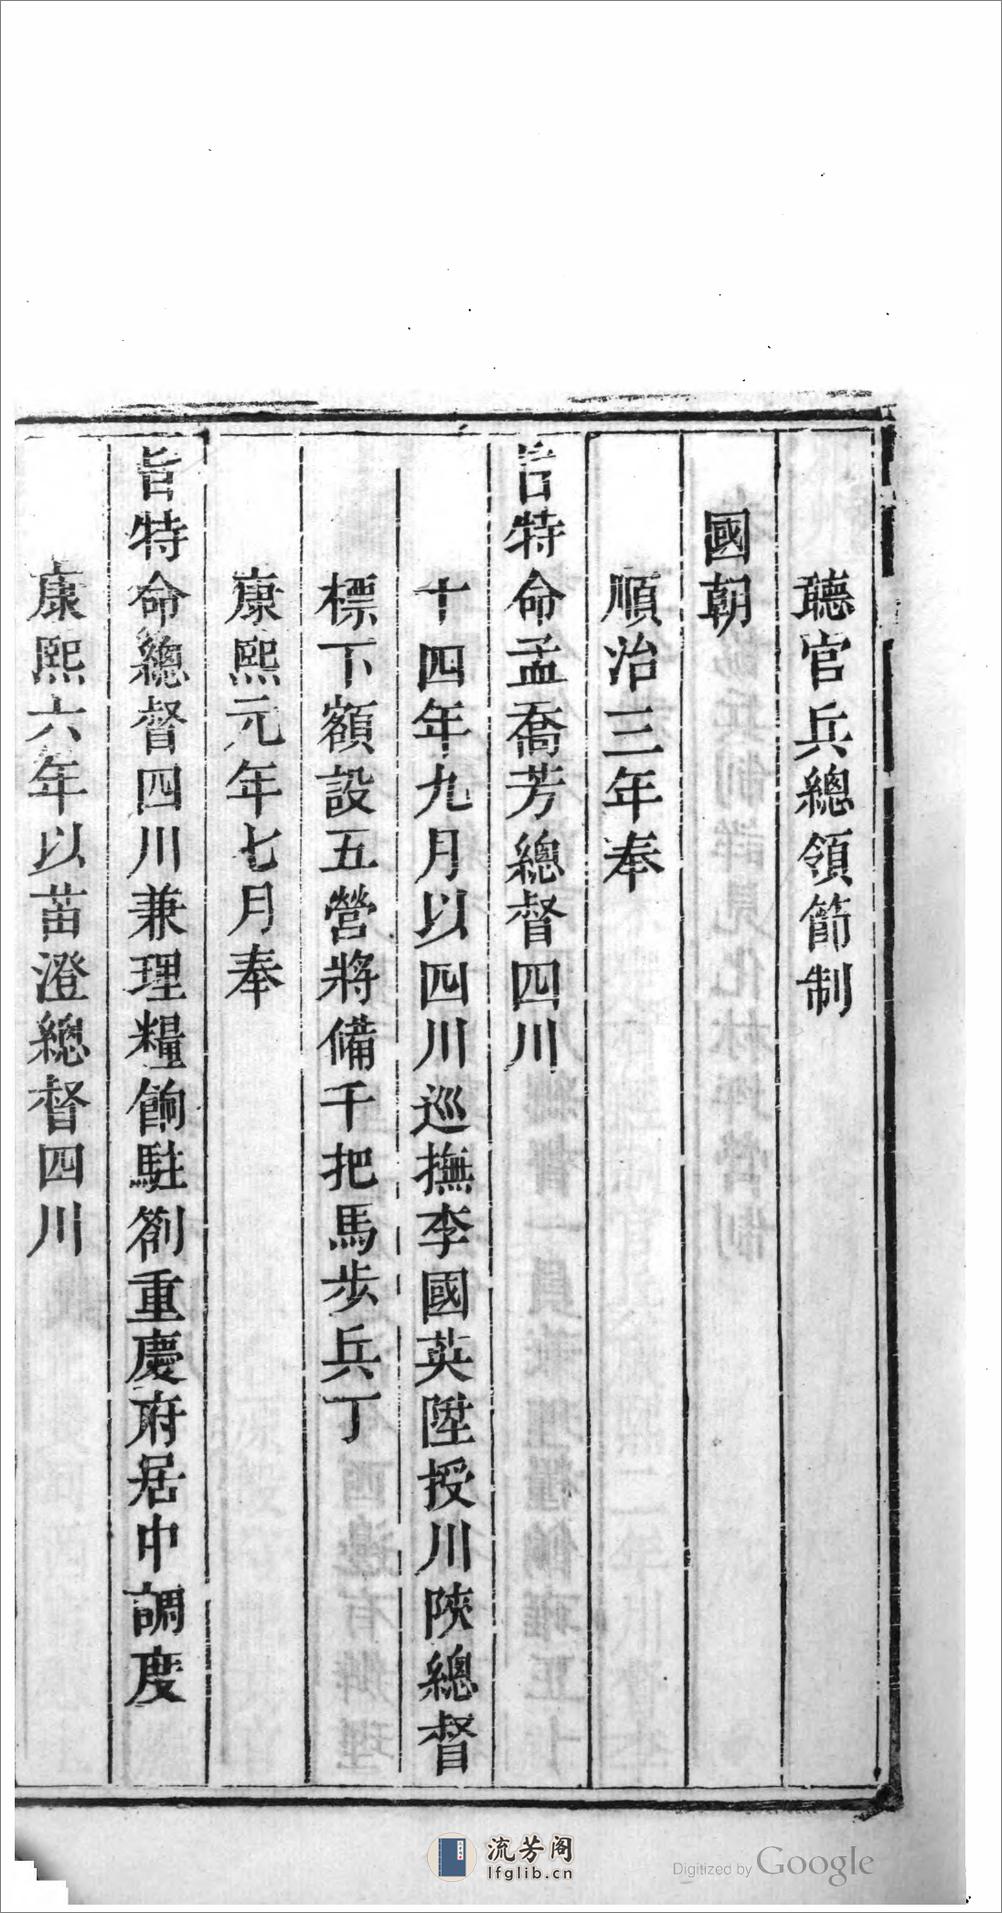 聽官兵總領節制
國朝
順治三年奉
旨特命孟喬芳總督四川
十四年九月以四川巡撫李國英陞授川陝總督
標下額設五營將備千把馬步兵丁
康熙元年七月奉
旨特命總督四川兼理糧餉駐劄重慶府居中調度
康熙六年以苗澄總督四川
流芳阁
lfglib.cn
Digitized by Google